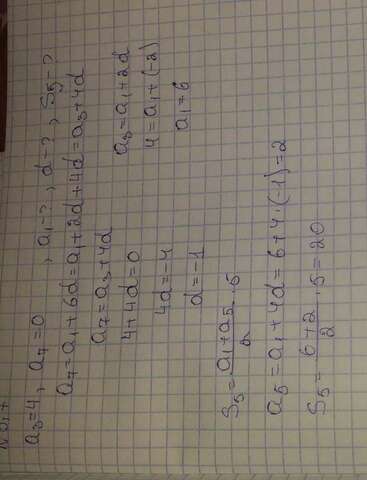 a₃=4, a₇=0, a₁-?, d-?, S₅-?
a₇=a₁+6d=a₁+2d+4d=a₃+4d
a₇=a₃+4d
4+4d=0
4d=-4
d=-1
a₃=a₁+2d
4=a₁+(-2)
a₁=6
S₅=(a₁+a₅)/2·5
a₅=a₁+4d=6+4·(-1)=2
S₅=(6+2)/2·5=20